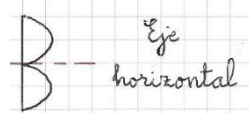 B
Eje
horizontal